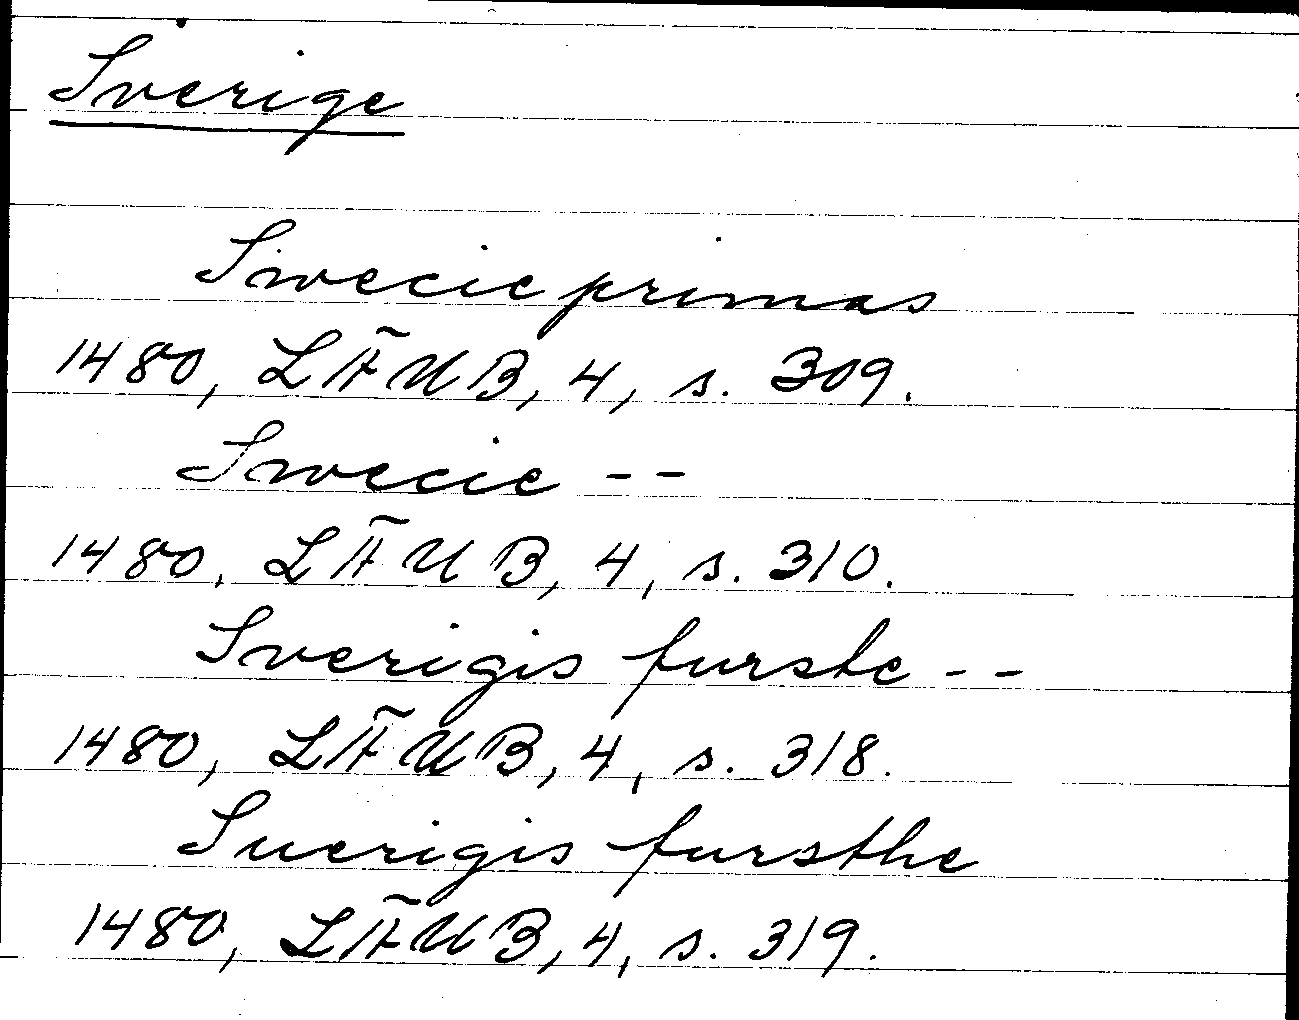 Sverige
Swecie primas
1480, LÄUB, 4, s. 309.
Swecie --
1480, LÄUB, 4, s. 310.
Sverigis furste --
1480, LÄUB, 4, s. 318.
Suerigis fursthe
1480, LÄUB, 4, s. 319.